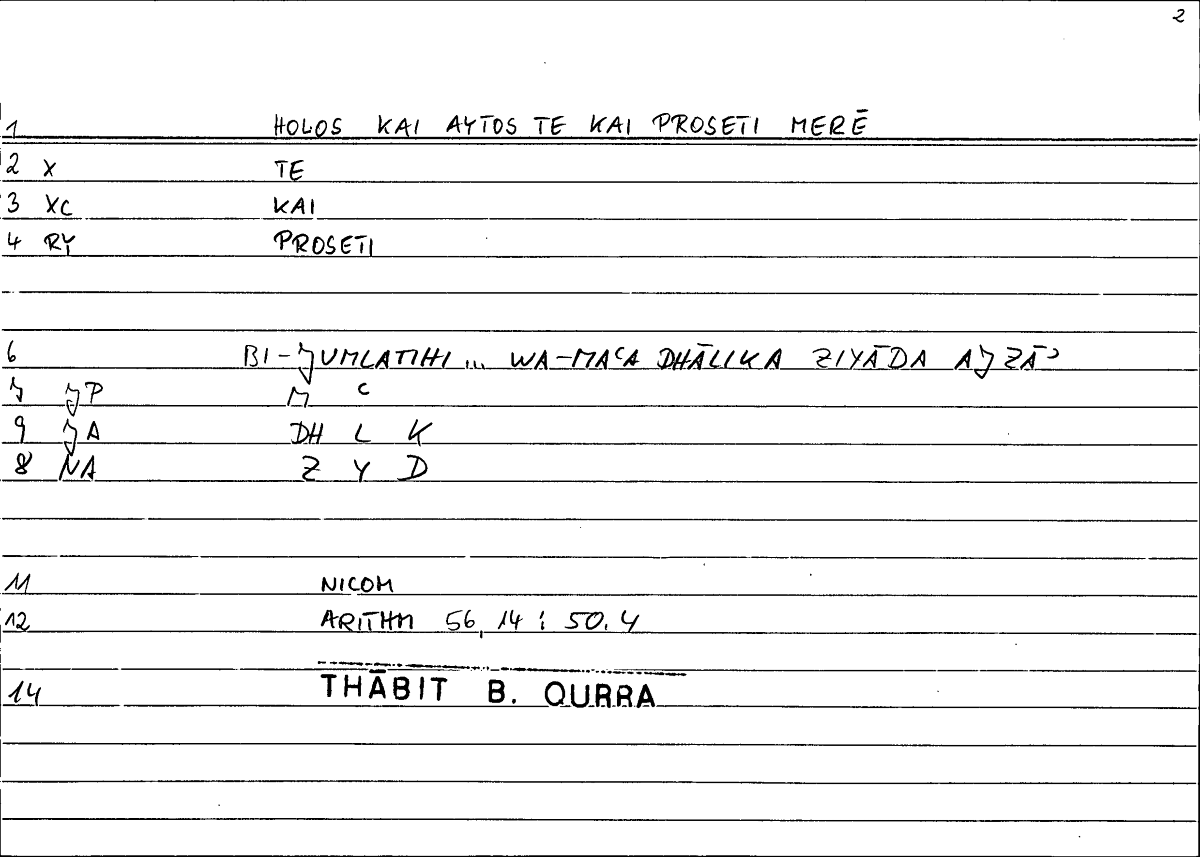 2
1 HOLOS KAI AYTOS TE KAI PROSETI MERĒ
2 X TE
3 XC KAI
4 RY PROSETI
6 BI-JUMLATIHI ... WA-MAᶜA DHĀLIKA ZIYĀDA AJZĀʾ
JP M ᶜ
9 JA DH L K
8 NA Z Y D
11 NICOM
12 ARITHM 56,14 ; 50.4
14 THĀBIT B. QURRA